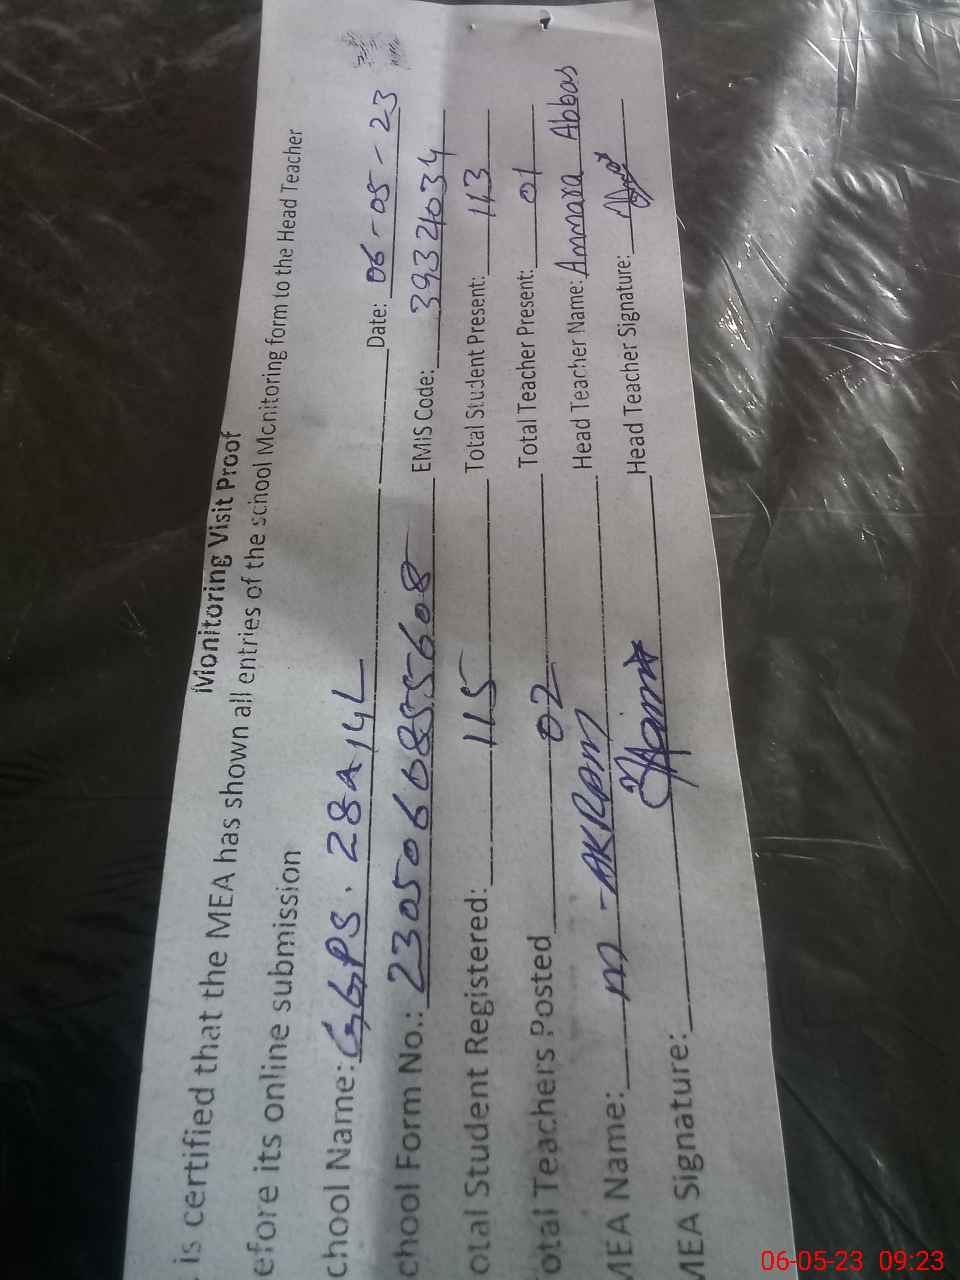 Monitoring Visit Proof
is certified that the MEA has shown all entries of the school Monitoring form to the Head Teacher
efore its online submission
chool Name: GGPS. 28A14L Date: 06-05-23
chool Form No.: 23050606855608 EMIS Code: 39324034
otal Student Registered: 115 Total Student Present: 113
otal Teachers Posted 02 Total Teacher Present: 01
MEA Name: m-AKRAM Head Teacher Name: Ammara Abbas
MEA Signature: Head Teacher Signature:
06-05-23 09:23